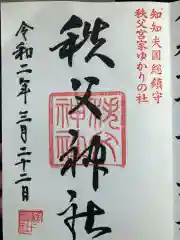 知知夫国総鎮守
秩父宮家ゆかりの社
秩父神社
令和二年三月二十二日